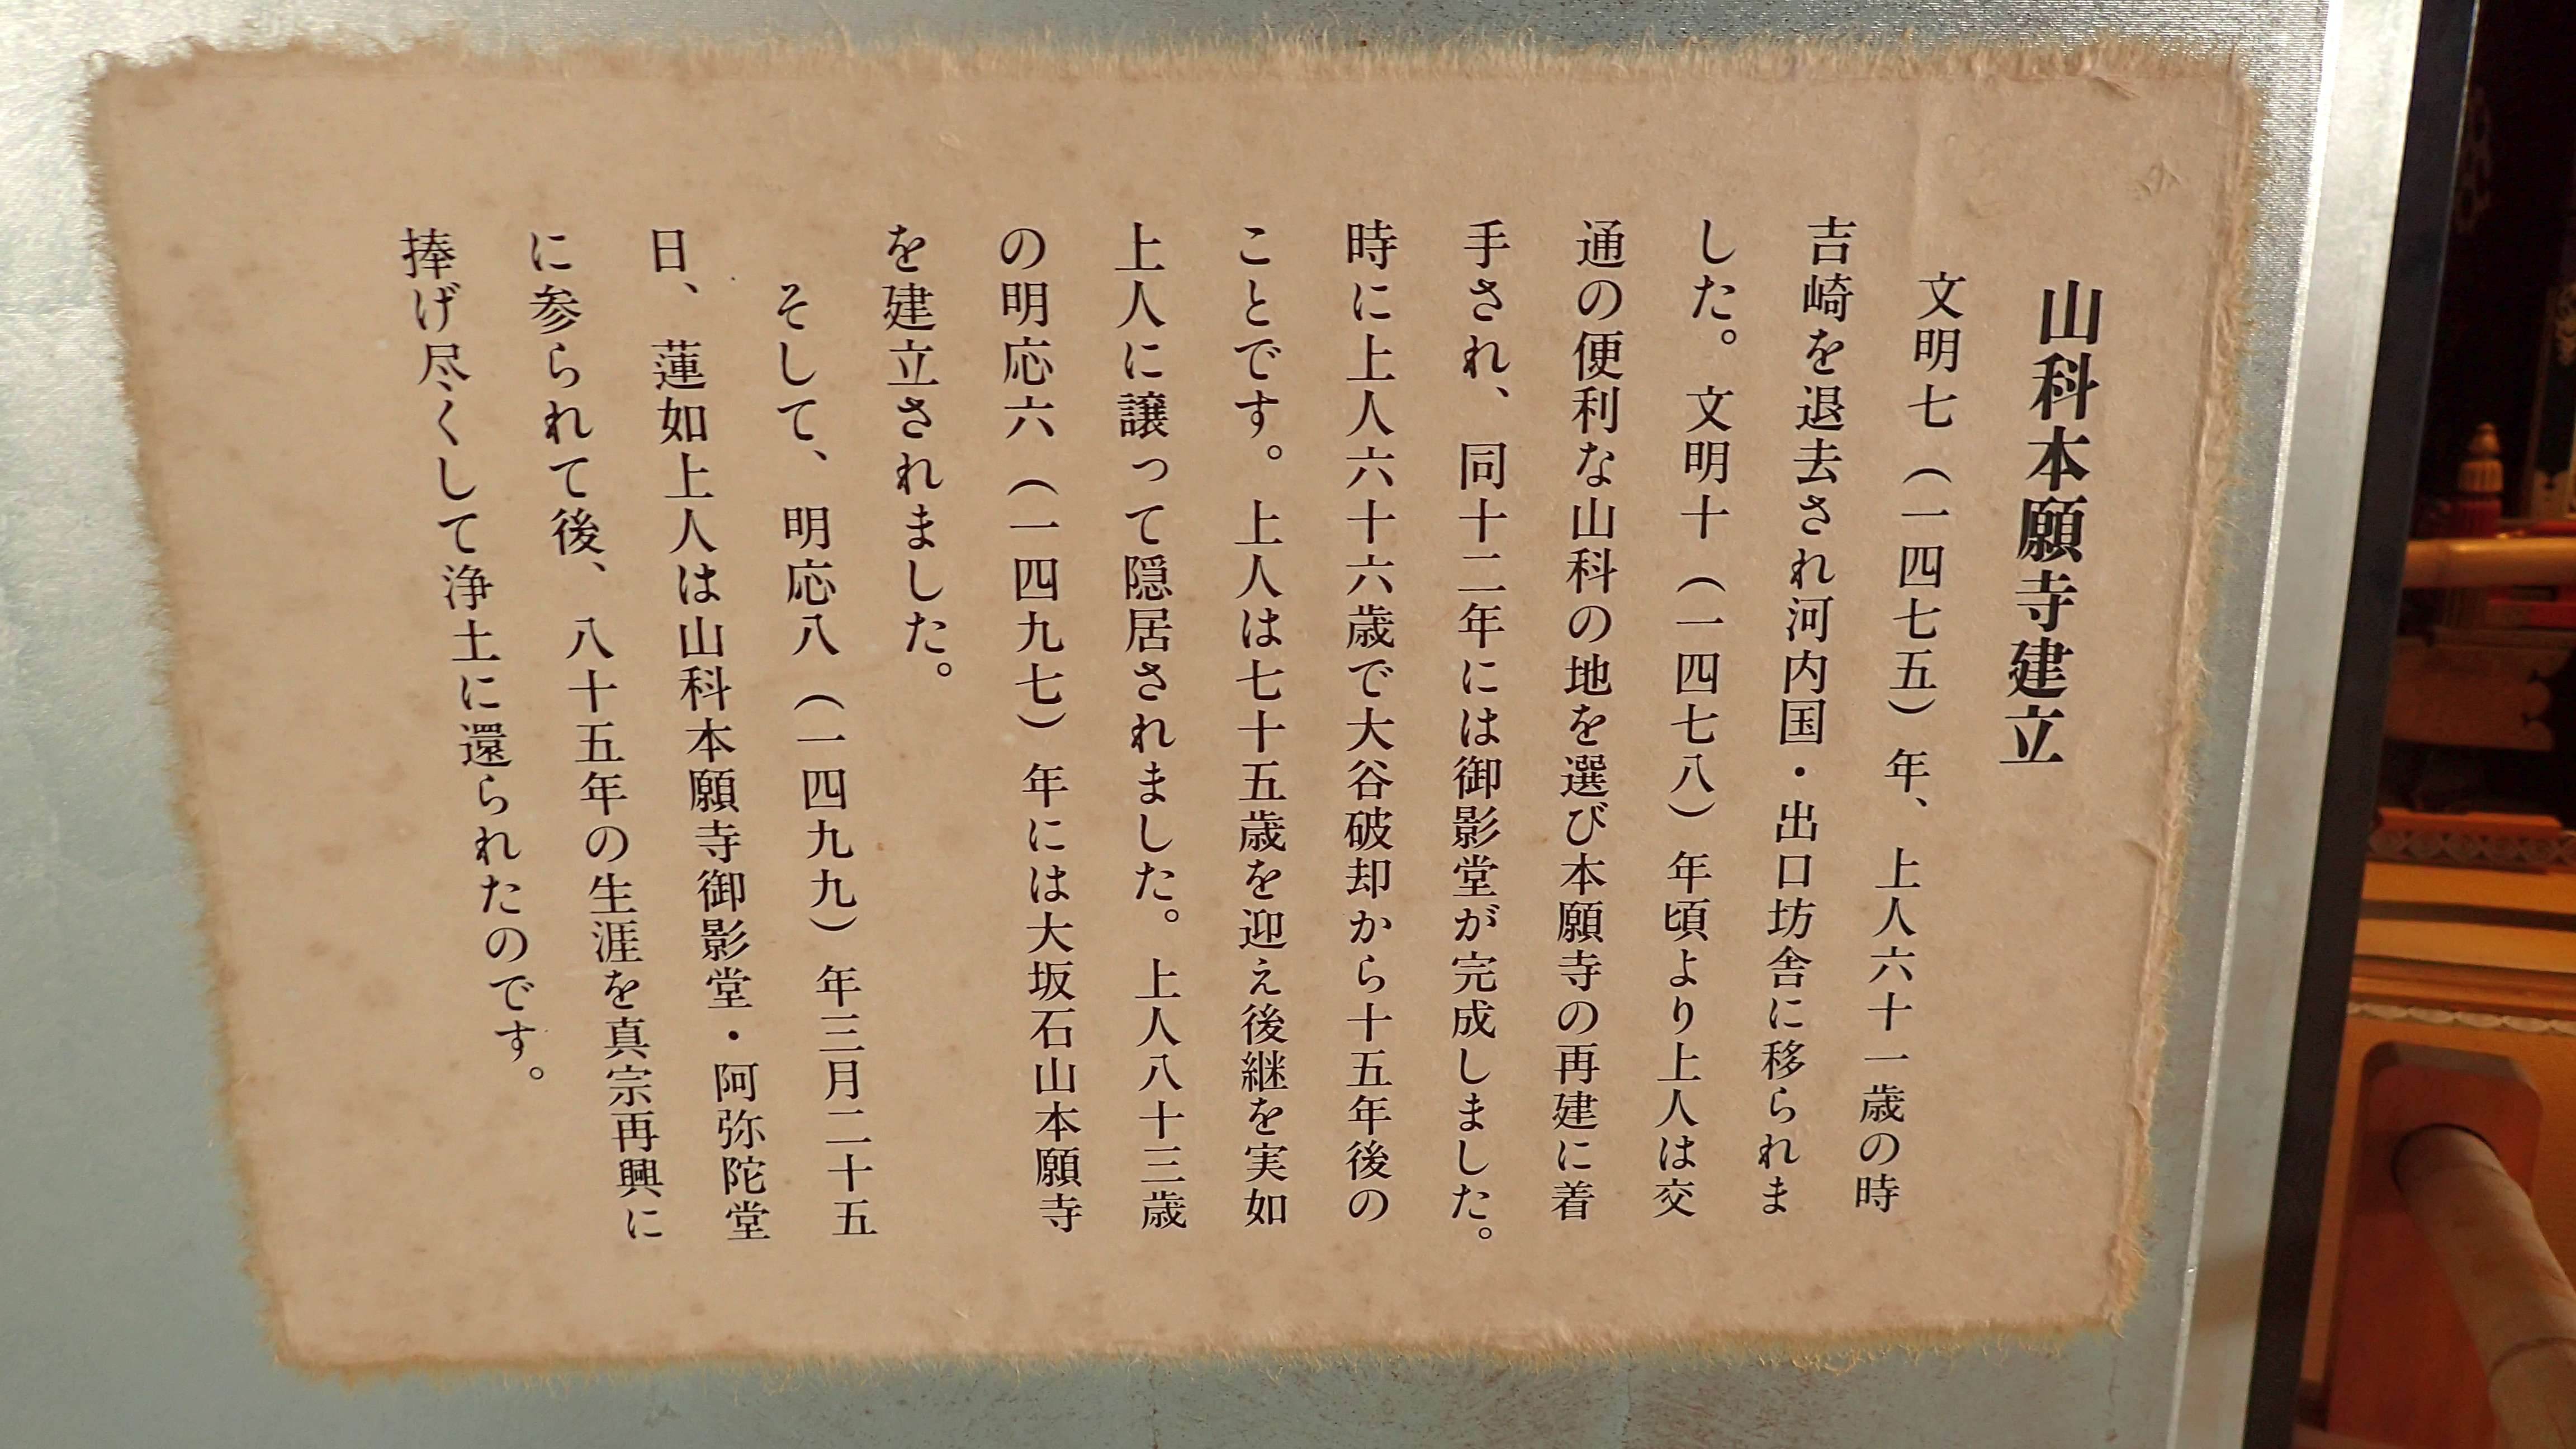 山科本願寺建立
文明七（一四七五）年、上人六十一歳の時
吉崎を退去され河内国・出口坊舎に移られま
した。文明十（一四七八）年頃より上人は交
通の便利な山科の地を選び本願寺の再建に着
手され、同十二年には御影堂が完成しました。
時に上人六十六歳で大谷破却から十五年後の
ことです。上人は七十五歳を迎え後継を実如
上人に譲って隠居されました。上人八十三歳
の明応六（一四九七）年には大坂石山本願寺
を建立されました。
そして、明応八（一四九九）年三月二十五
日、蓮如上人は山科本願寺御影堂・阿弥陀堂
に参られて後、八十五年の生涯を真宗再興に
捧げ尽くして浄土に還られたのです。